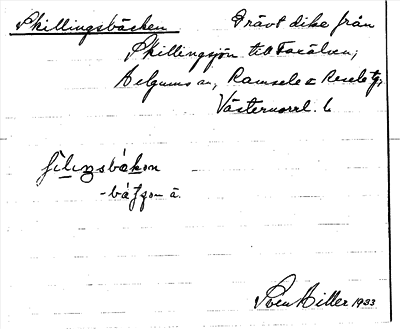 Skillingsbäcken Grävt dike från
Skillingsjön till Faxälven;
Helgums sn, Ramsele o Resele tg,
Västernorrl. l
ʃilıŋsbákǝn
-bátʃǝn ä.
Sven Hiller 1933